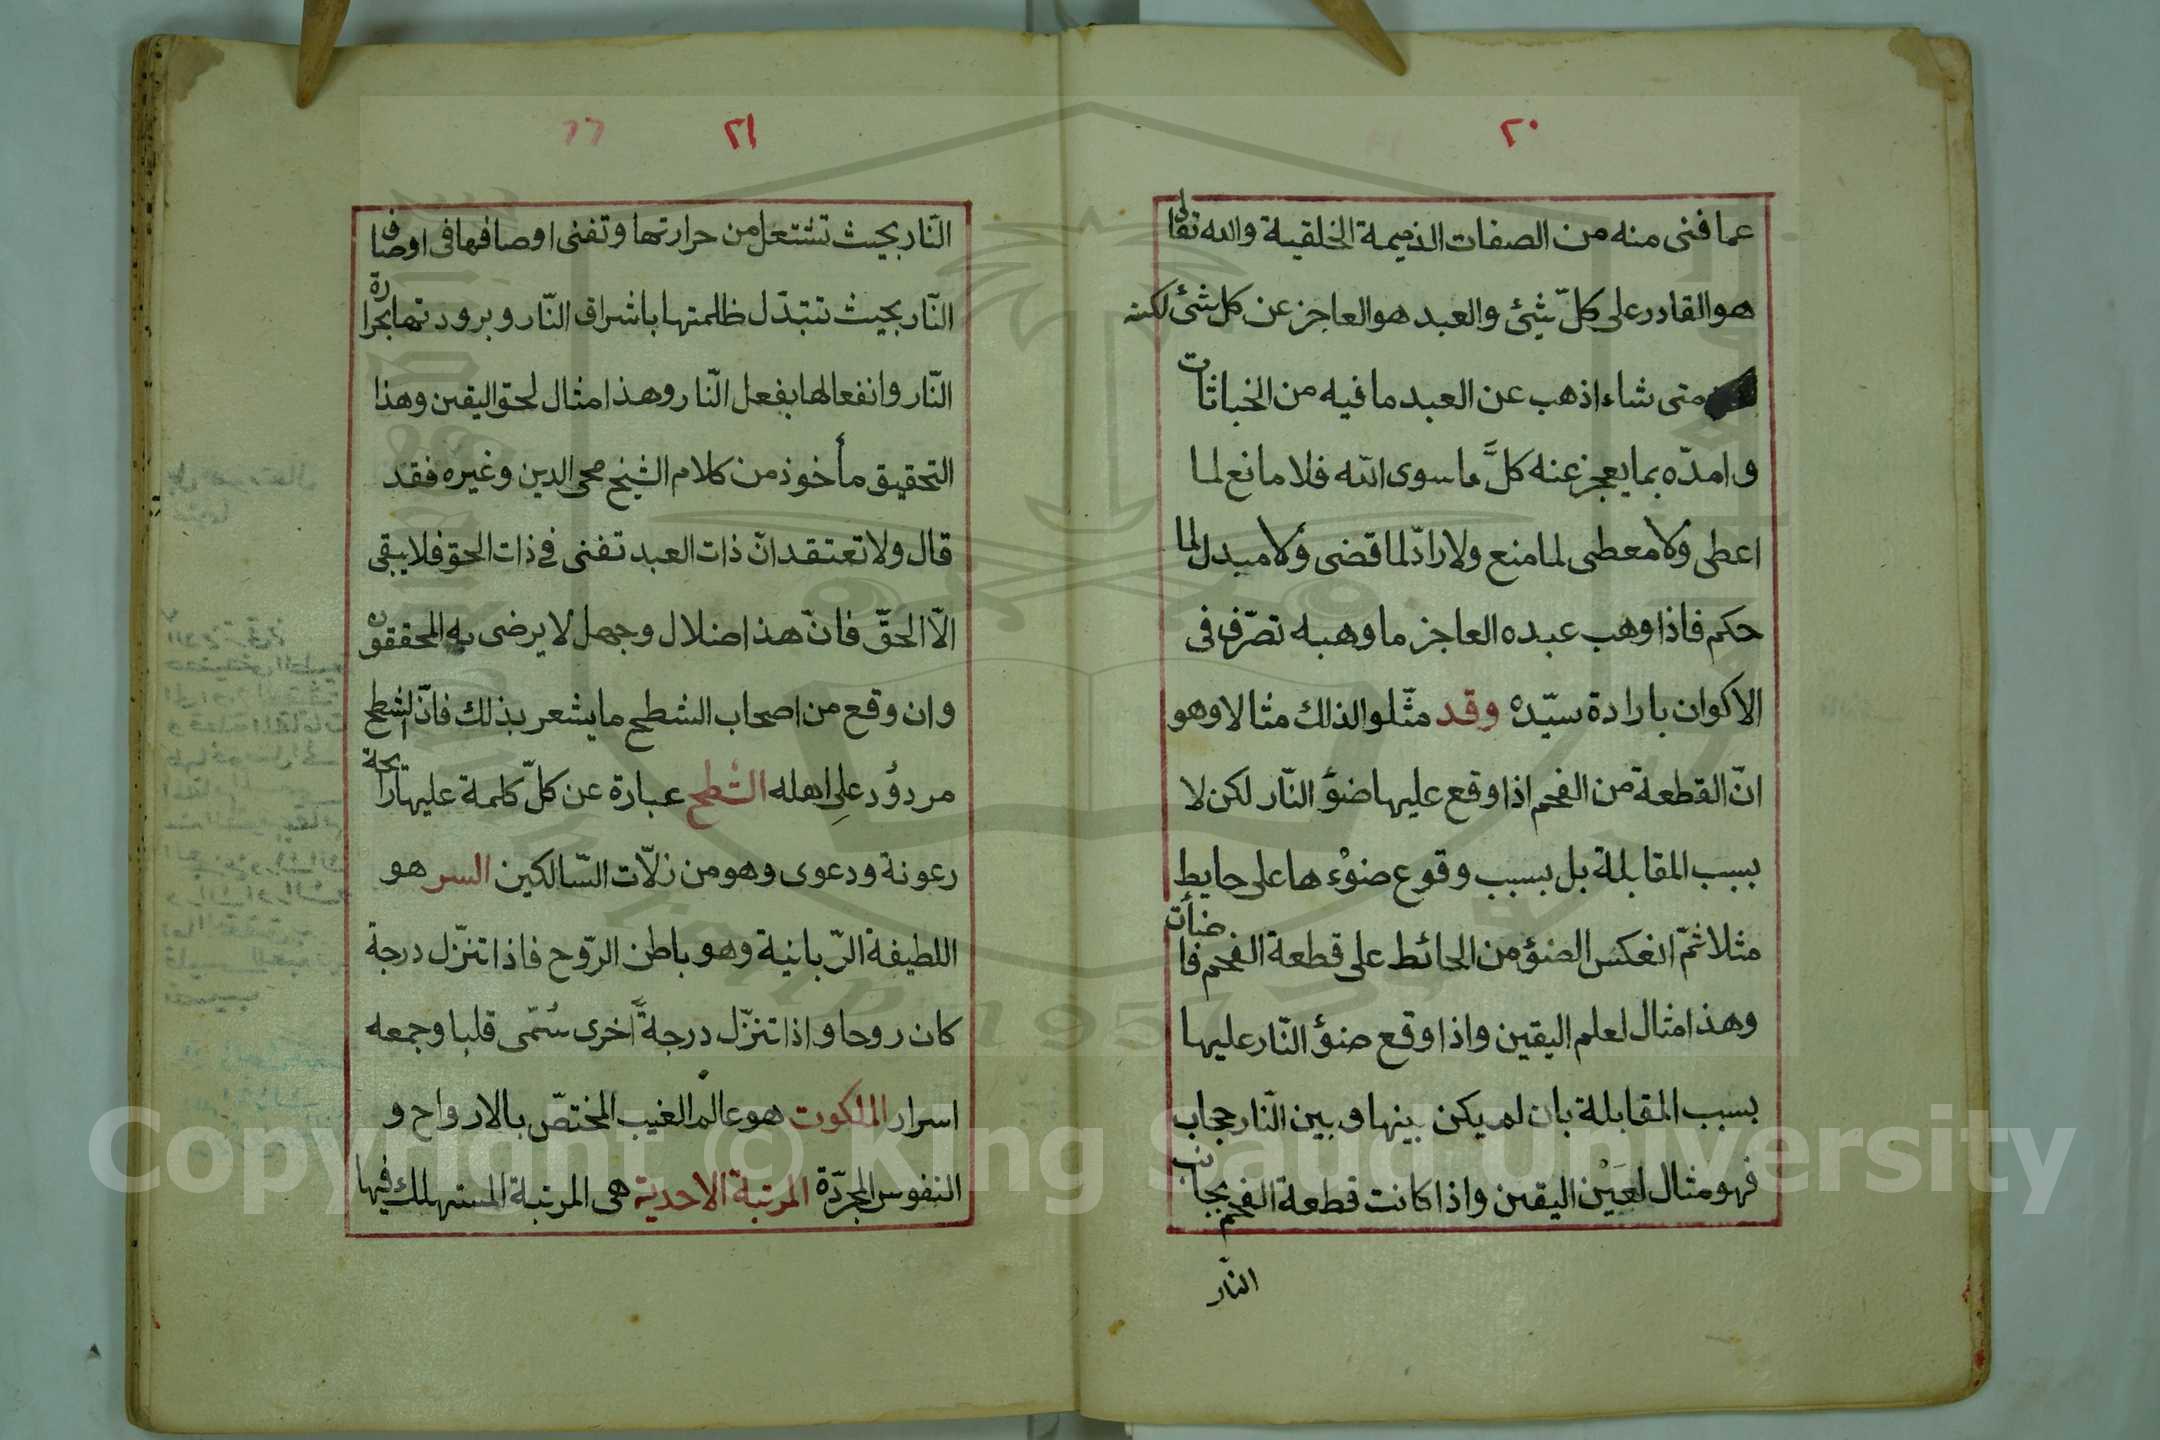 ٢٠
عما فنى منه من الصفات الذميمة الخلقية والله تعالى
هو القادر على كلّ شئ والعبد هو العاجز عن كل شئ لكنه
متى شاء اذهب عن العبد ما فيه من الخباثات
وامدّه بما يعجز عنه كلَّ ما سوى الله فلا مانع لما
اعطى ولا معطى لما منع ولا رادّ لما قضى ولا مبدل لما
حكم فاذا وهب عبده العاجز ما وهبه تصرّف فى
الاكوان بارادة سيّده وقد مثّلوا لذلك مثالا وهو
انّ القطعة من الفحم اذا وقع عليها ضؤ النّار لكن لا
بسبب المقابلة بل بسبب وقوع ضوْء ها على حايط
مثلا ثمّ انعكس الضؤ من الحائط على قطعة الفحم فاضأت
وهذا مثال لعلم اليقين واذا وقع ضؤ النّار عليها
بسبب المقابلة بان لم يكن بينها وبين النّار حجاب
فهو مثال لعَيْن اليقين واذا كانت قطعة الفحم بجانب
النّار
٢١
٢٢
النّار بحيث تشتعل من حرارتها وتفنى اوصافها فى اوصاف
النّار بحيث تتبدّل ظلمتها باشراق النّار وبرودتها بحرارة
النّار وانفعالها بفعل النّار وهذا مثال لحق اليقين وهذا
التحقيق مأخوذ من كلام الشيخ محى الدين وغيره فقد
قال ولا تعتقد انّ ذات العبد تفنى فى ذات الحق فلا يبقى
الّا الحقّ فانّ هذا ضلال وجهل لا يرضى به المحققون
وان وقع من اصحاب الشطح ما يشعر بذلك فانّ الشطح
مردوُد على اهله الشْطح عبارة عن كلّ كلمة عليها رايحة
رعونة ودعوى وهو من زلّات السّالكين السر هو
اللطيفة الرّبانية وهو باطن الرّوح فاذا تنزّل درجة
كان روحا واذا تنزّل درجةً اخرى سُمّى قلبا وجمعه
اسرار الملكوت هو عالم الغيب المختصّ بالارواح و
النفوس المجرّدة المرتبة الاحدية هى المرتبة المستهلك فيها
Copyright © King Saud University
1957